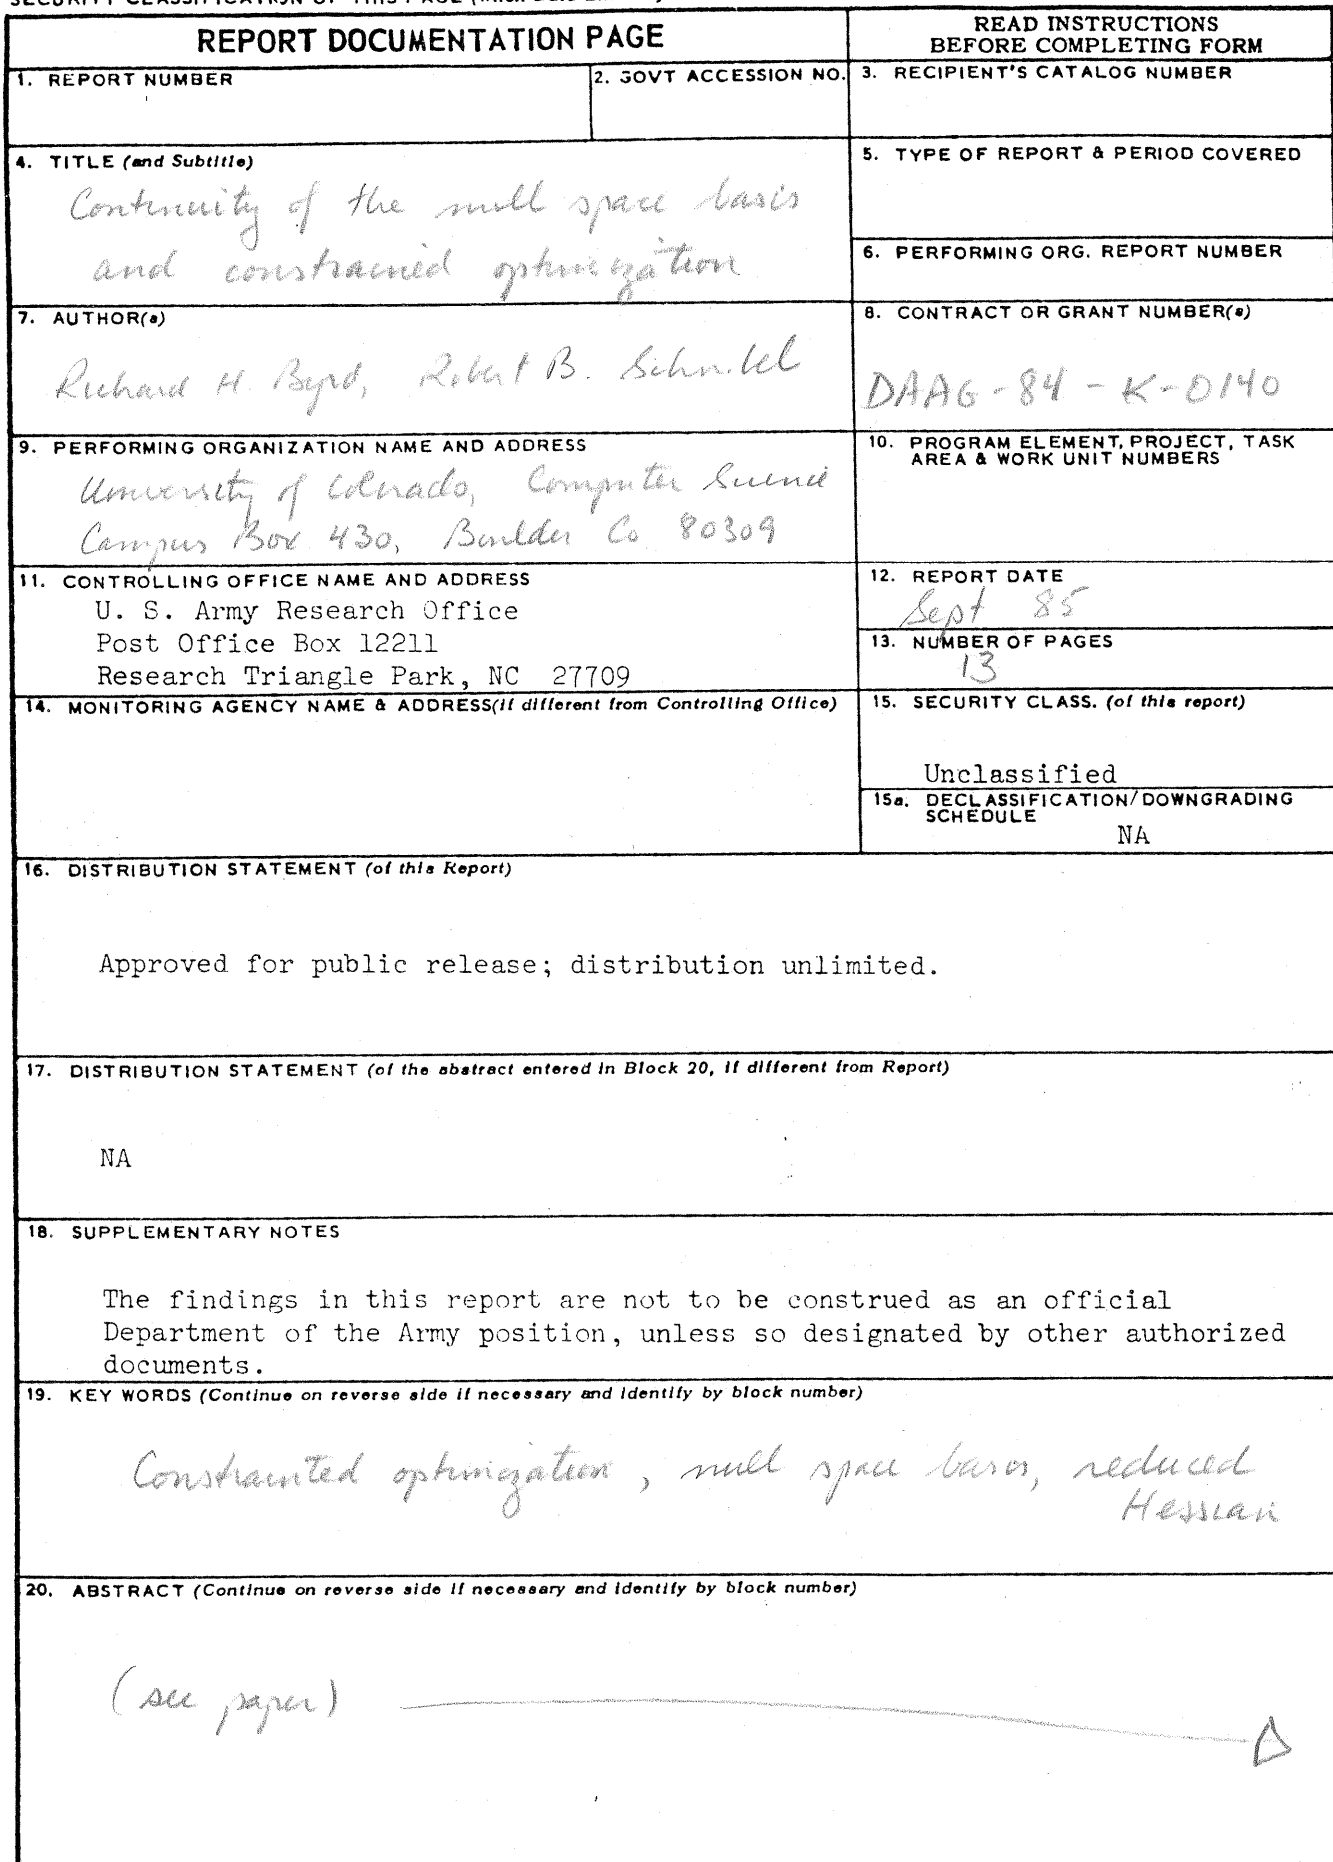 SECURITY CLASSIFICATION OF THIS PAGE
REPORT DOCUMENTATION PAGE
READ INSTRUCTIONS
BEFORE COMPLETING FORM
1. REPORT NUMBER
2. GOVT ACCESSION NO.
3. RECIPIENT'S CATALOG NUMBER
4. TITLE (and Subtitle)
Continuity of the null space basis
and constrained optimization
5. TYPE OF REPORT & PERIOD COVERED
6. PERFORMING ORG. REPORT NUMBER
7. AUTHOR(s)
Richard H. Byrd, Robert B. Schnabel
8. CONTRACT OR GRANT NUMBER(s)
DAAG-84-K-0140
9. PERFORMING ORGANIZATION NAME AND ADDRESS
University of Colorado, Computer Science
Campus Box 430, Boulder Co 80309
10. PROGRAM ELEMENT, PROJECT, TASK
AREA & WORK UNIT NUMBERS
11. CONTROLLING OFFICE NAME AND ADDRESS
U. S. Army Research Office
Post Office Box 12211
Research Triangle Park, NC 27709
12. REPORT DATE
Sept 85
13. NUMBER OF PAGES
13
14. MONITORING AGENCY NAME & ADDRESS(if different from Controlling Office)
15. SECURITY CLASS. (of this report)
Unclassified
15a. DECLASSIFICATION/DOWNGRADING
SCHEDULE
NA
16. DISTRIBUTION STATEMENT (of this Report)
Approved for public release; distribution unlimited.
17. DISTRIBUTION STATEMENT (of the abstract entered in Block 20, if different from Report)
NA
18. SUPPLEMENTARY NOTES
The findings in this report are not to be construed as an official
Department of the Army position, unless so designated by other authorized
documents.
19. KEY WORDS (Continue on reverse side if necessary and identify by block number)
Constrainted optimization, null space basis, reduced
Hessian
20. ABSTRACT (Continue on reverse side if necessary and identify by block number)
(see paper)